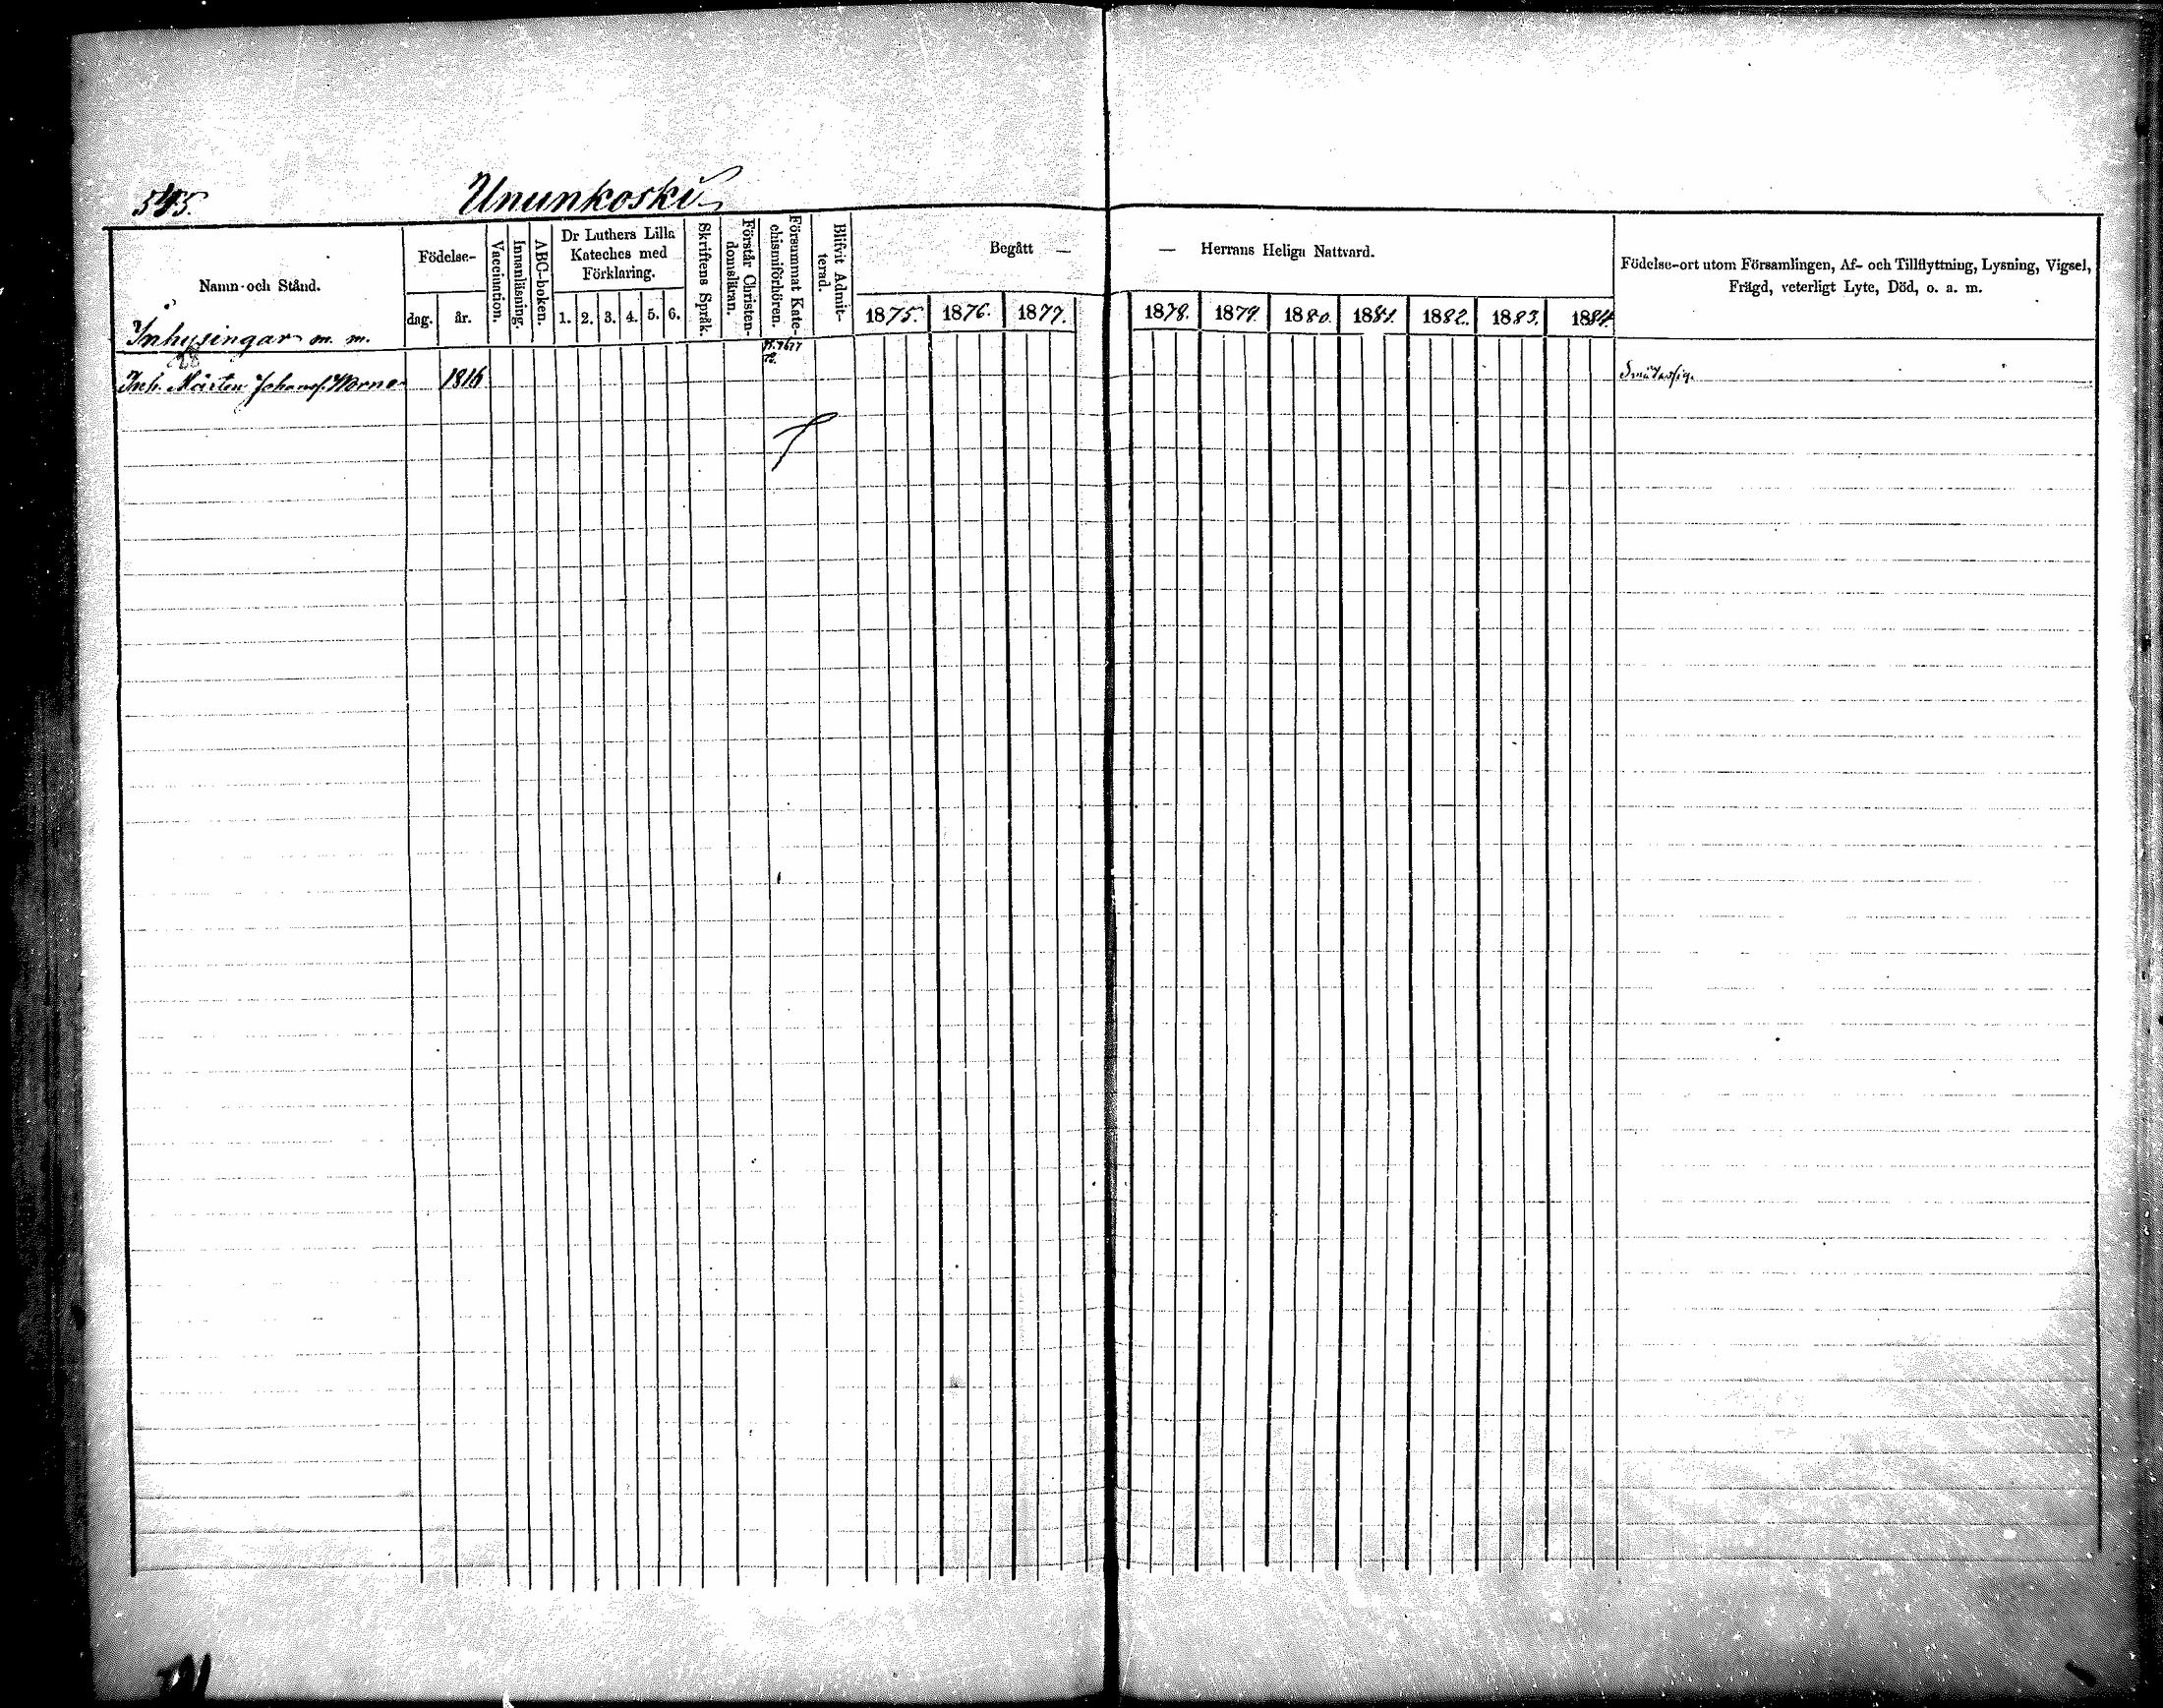 545. Ununkoski
Namn och Stånd.
Födelse-
dag.
år.
Vaccination.
Innanläsning.
ABC-boken.
Dr Luthers Lilla
Kateches med
Förklaring.
1. 2. 3. 4. 5. 6.
Skriftens Språk.
Förstår Christen-
domsläran.
Försummat Kate-
chismiförhören.
Blifvit Admit-
terad.
Begått —
— Herrans Heliga Nattvard.
1875. 1876. 1877. 1878. 1879. 1880. 1881. 1882. 1883. 1884.
Födelse-ort utom Församlingen, Af- och Tillflyttning, Lysning, Vigsel,
Frägd, veterligt Lyte, Död, o. a. m.
Inhysingar m. m.
Inh. Mårten Johansf. 1816